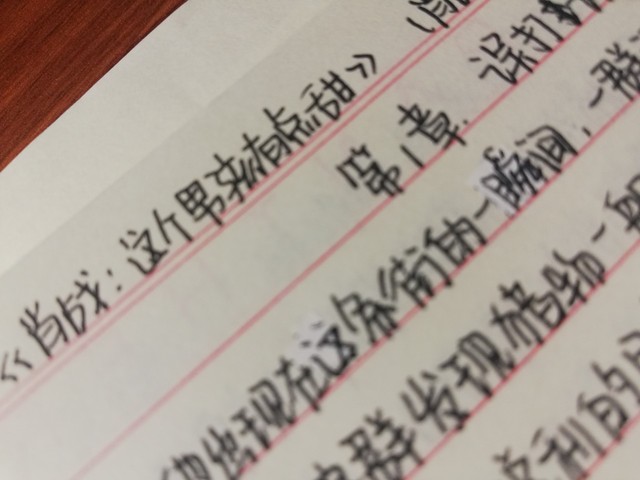 《肖战：这个男孩有点甜》
第1章 误打
出现在这条街的一瞬间，一群
群发现猎物一
利的